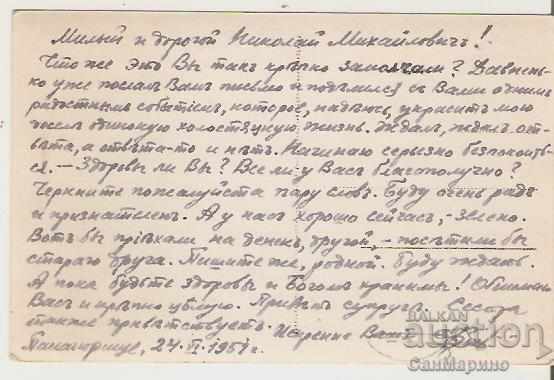 Милый и дорогой Николай Михайловичъ!
Что же это Вы такъ крѣпко замолчали? Давнень-
ко уже послалъ Вамъ письмо и подѣлился съ Вами очень
радостнымъ событіем, которое, надѣюсь, украситъ мою
одинокую холостяцкую жизнь. Ждалъ, ждалъ от-
вѣта, а отвѣта-то и нѣтъ. Начинаю серьезно безпокоить-
ся. — Здоровы ли Вы? Все ли у Васъ благополучно?
Черкните пожалуйста пару словъ. Буду очень радъ
и признателенъ. А у насъ хорошо сейчасъ, — зелено.
Вотъ бы пріѣхали на денекъ, другой, — посѣтили бы
стараго друга. Пишите же, родной. Буду ждать.
А пока будьте здоровы и Богомъ хранимы! Обнимаю
Васъ и крѣпко цѣлую. Привѣтъ супругѣ.
также привѣтствуетъ. Искренно Вашъ
24. VI. 1951 г.
BALKAN
auction
СанМарино